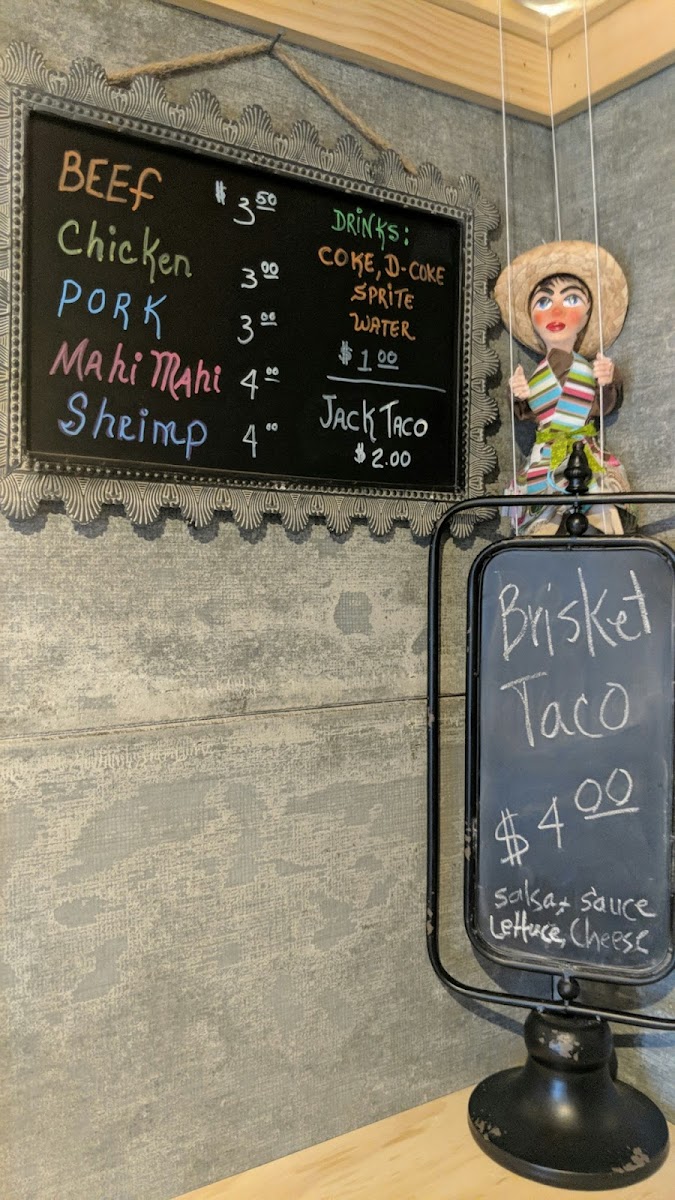 BEEf $ 3 50
Chicken 3 00
PORK 3 00
Mahi Mahi 4 00
Shrimp 4 00
DRiNKS:
COKE, D-COKE
SPRITE
WATER
$ 1 00
JACK TACO
$ 2.00
Brisket
Taco
$ 4 00
salsa, sauce
Lettuce, Cheese